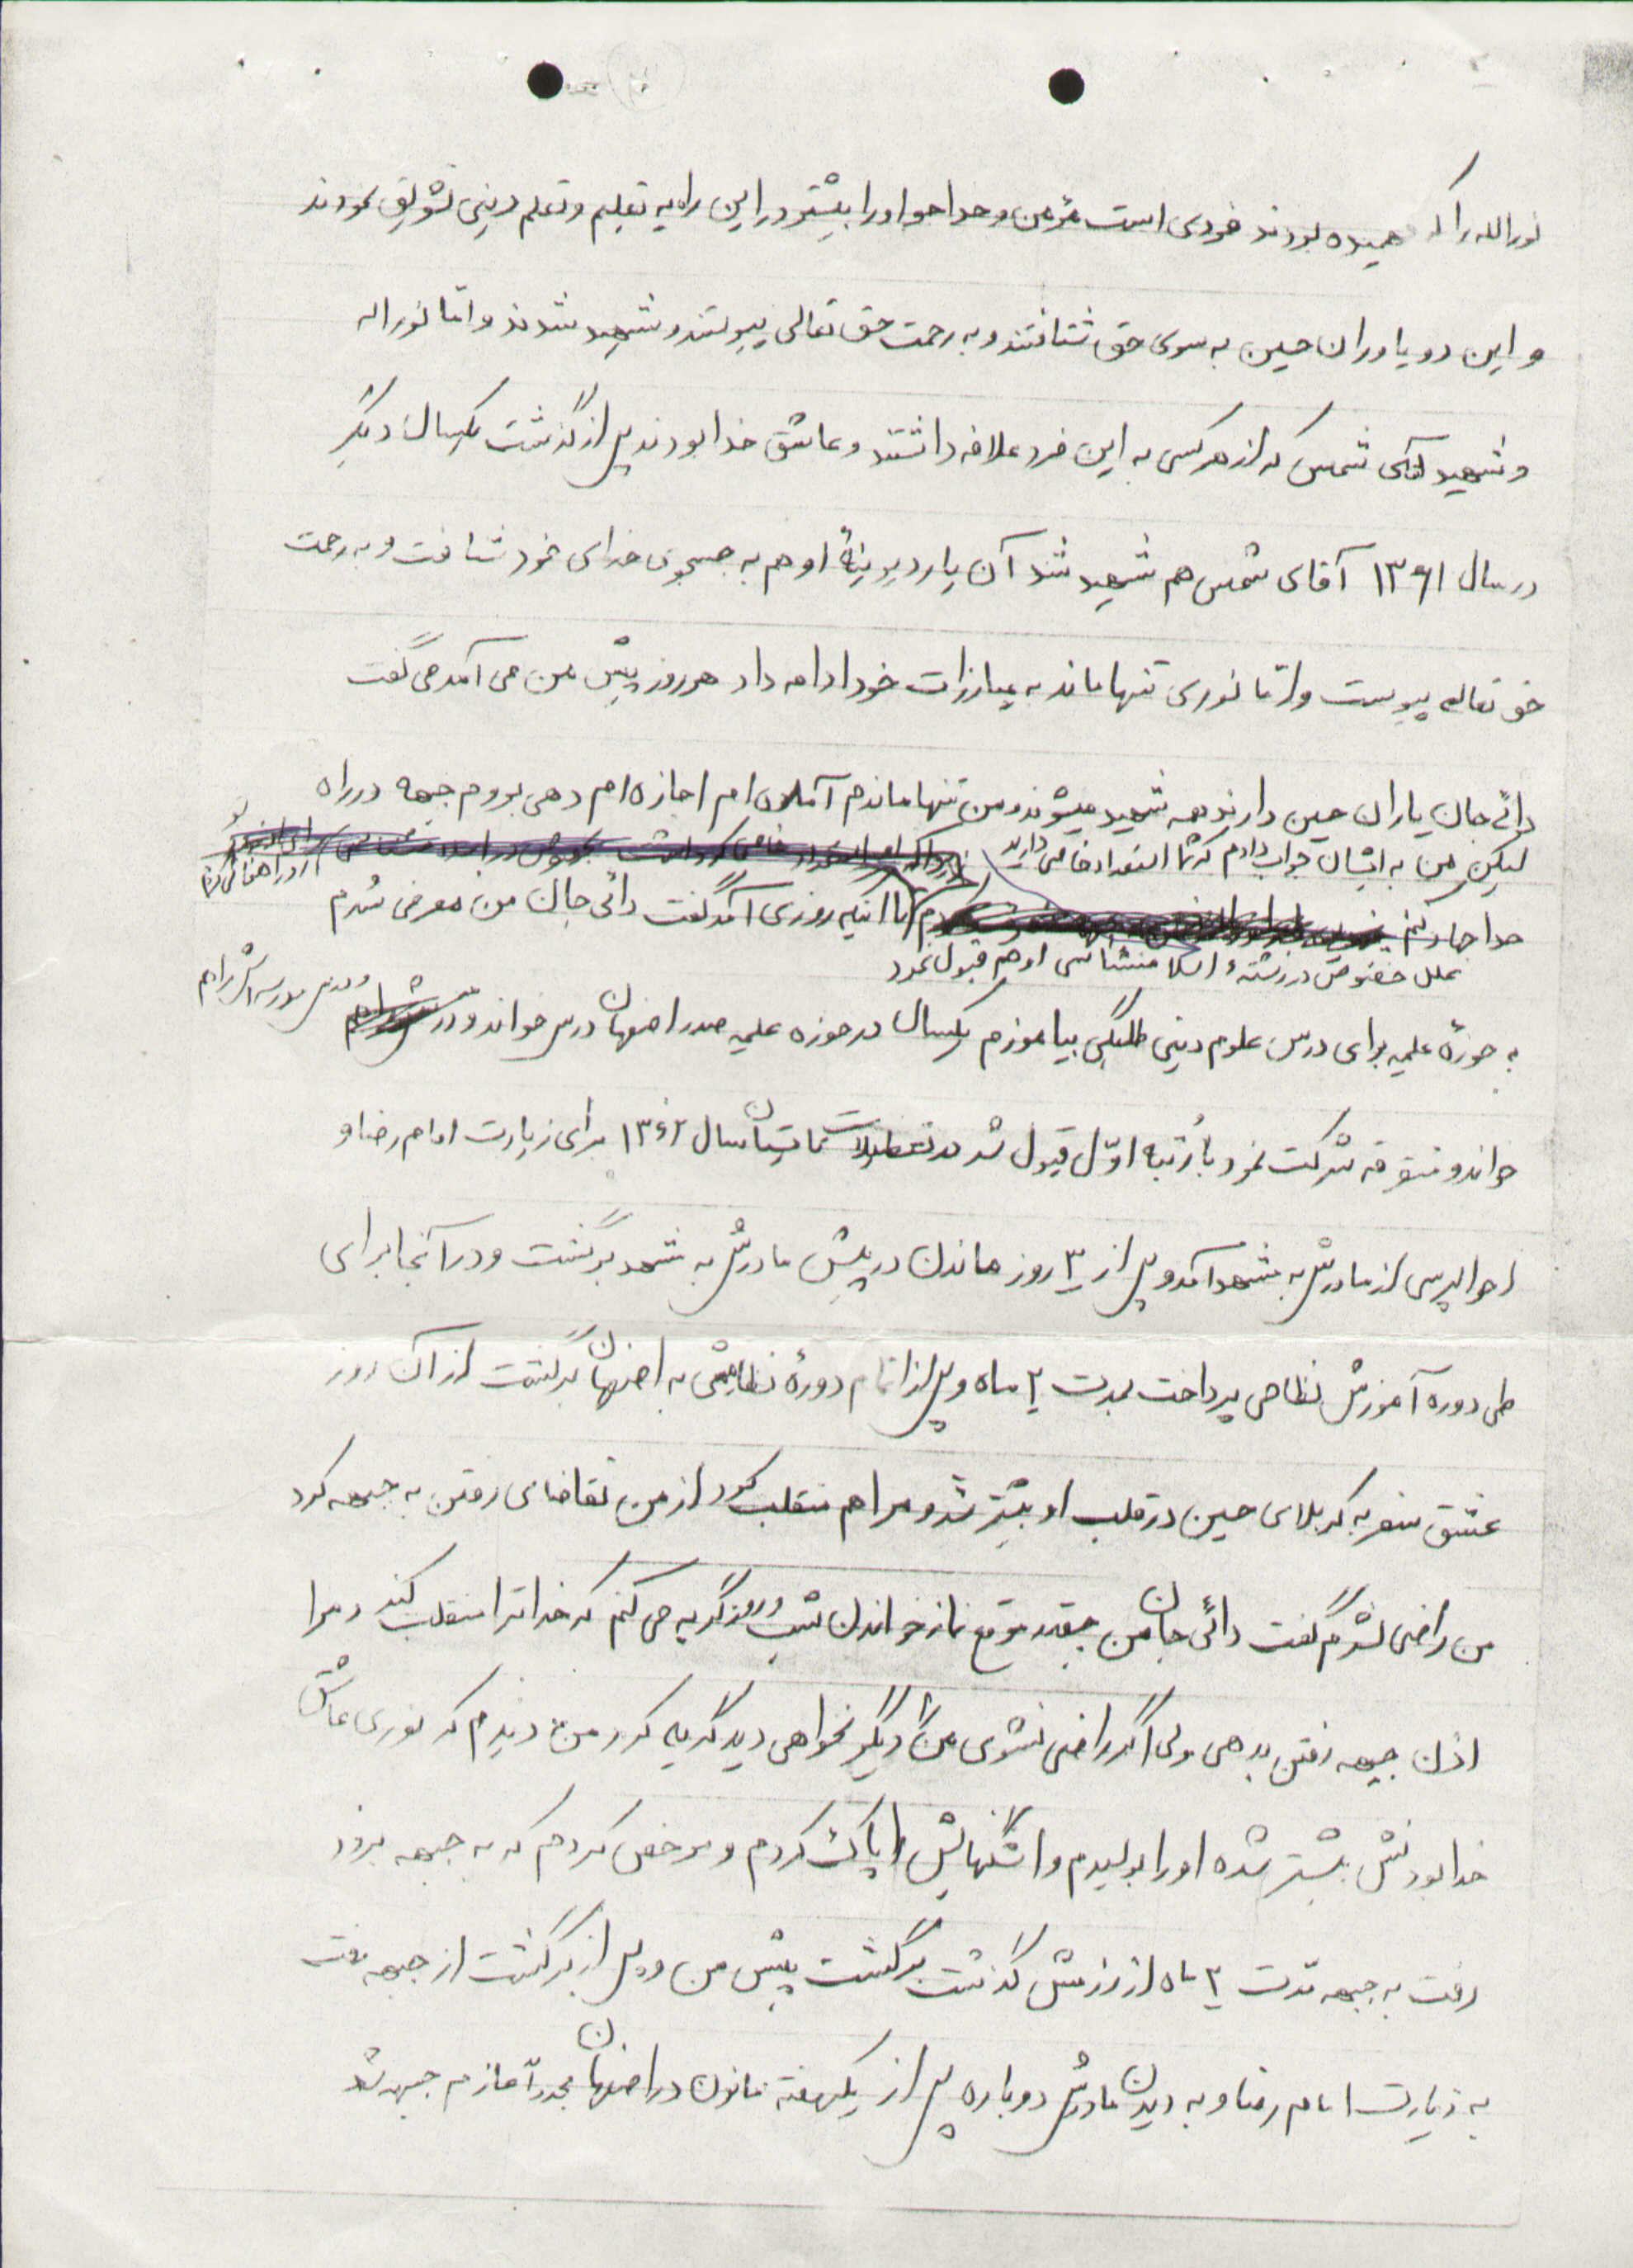 نورالله را که فهمیده بودند فردی است مؤمن و خداخواه او را بیشتر در این راه به تعلیم و تعلم دینی تشویق نمودند
و این دو یاوران حسین به سوی حق شتافتند و به رحمت حق تعالی پیوستند و شهید شدند و اما نورالله
و شهید آقای شمس که از هر کس به این فرد علاقه داشتند و عاشق خدا بودند پس از گذشت یکسال دیگر
در سال ۱۳۶۱ آقای شمس هم شهید شد آن یار دیرینهٔ او هم به جستجوی خدای خود شتافت و به رحمت
حق تعالی پیوست و اما نوری تنها ماند به مبارزات خود ادامه داد هر روز پیش من می آمد می گفت
دائی جان یاران حسین دارند همه شهید میشوند و من تنها ماندم آماده ام اجازه ام دهی بروم جبهه در راه
لیکن من به ایشان جواب دادم که شما استعداد خاصی دارید
خدا جهاد کنم تا اینکه روزی آمد گفت دائی جان من معرفی شدم
علل خصوص در رشتهٔ اسلامشناسی او هم قبول نمود
به حوزهٔ علمیه برای درس علوم دینی طلبگی بیاموزم یکسال در حوزه علمیه صدر اصفهان درس خواند و در
و درس مدرسه اش را هم
خواند و متفرقه شرکت نمود با رُتبه اوّل قبول شد در تعطیلات تابستان سال ۱۳۶۲ برای زیارت امام رضا و
احوالپرسی از مادرش به مشهد آمد و پس از ۳ روز ماندن در پیش مادرش به مشهد برگشت و در آنجا برای
طی دوره آموزش نظامی پرداخت بمدت ۲ ماه و پس از اتمام دورهٔ نظامیش به اصفهان برگشت از آن روز
عشق سفر به کربلای حسین در قلب او بیشتر شد و مرا هم منقلب کرد از من تقاضای رفتن به جبهه کرد
من راضی نشدم گفت دائی جان من چقدر موقع نماز خواندن شب و روز گریه می کنم که خدا ترا منقلب کند و مرا
اذن جبهه رفتن بدهی ولی اگر راضی نشوی من را دیگر نخواهی دید گریه کرد من دیدم که نوری عاشق
خدا بودنش بیشتر شده او را بوسیدم و اشگهایش را پاک کردم و مرخص کردم که به جبهه برود
رفت به جبهه مدت ۳ ماه از رزمش گذشت برگشت پیش من و پس از برگشت از جبهه رفت
به زیارت امام رضا و به دیدن مادرش دوباره پس از یکهفته ماندن در اصفهان مجدداً عازم جبهه شد